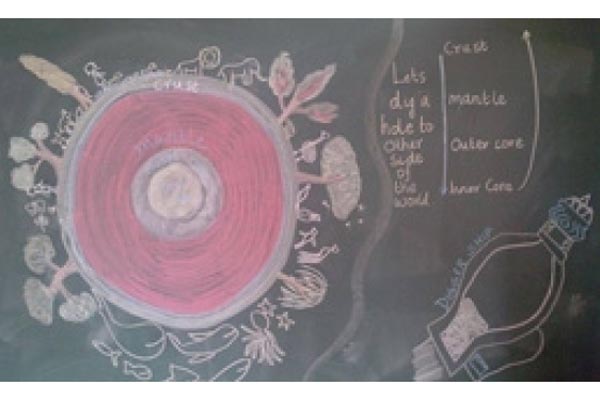 Crust
Mantle
Lets
dig a
hole to
other
side
of
the
world
Crust
mantle
Outer core
Inner Core